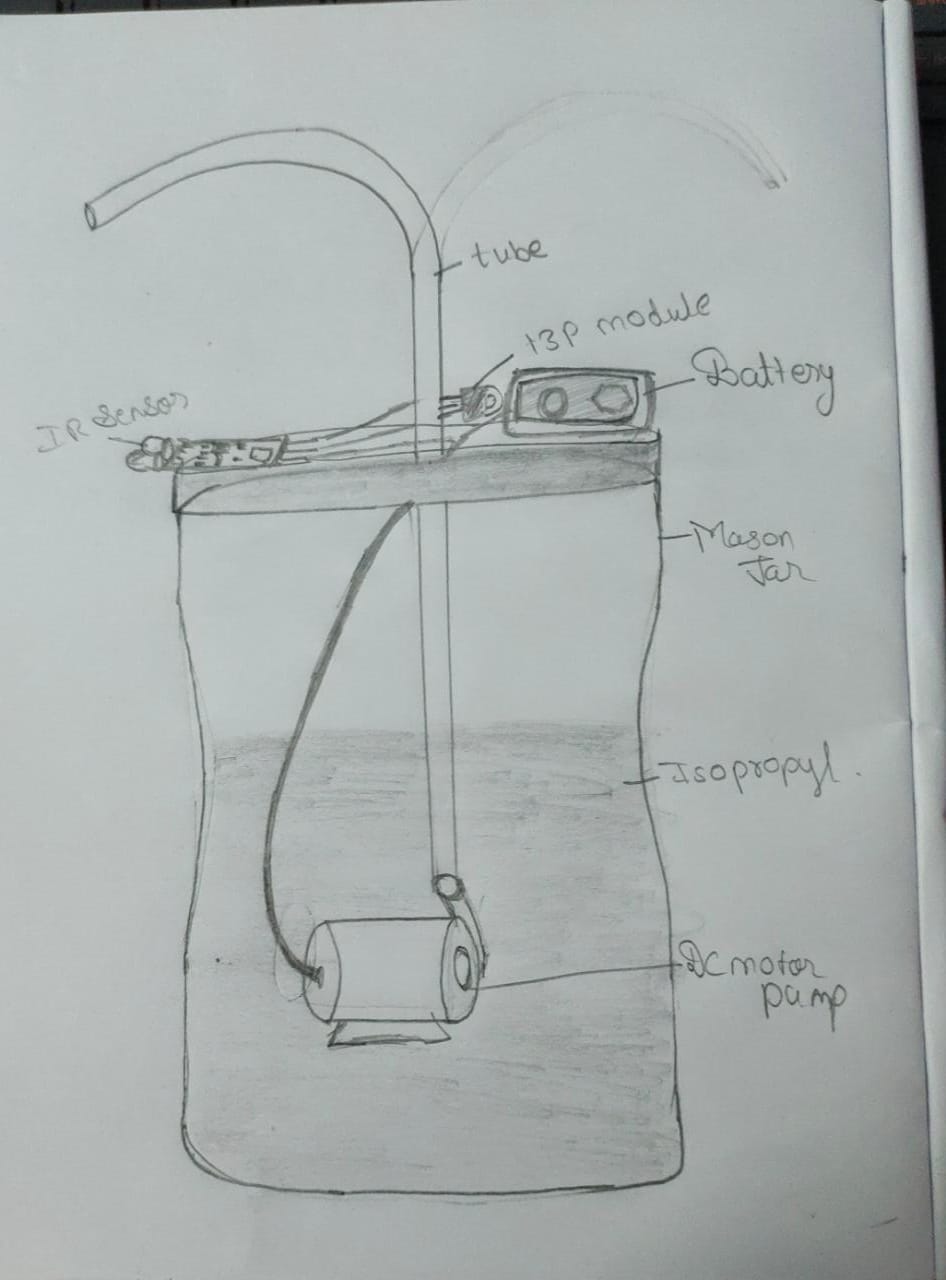 tube
13P module
Battery
IR Sensor
Mason
Jar
Isopropyl.
DC motor
pump